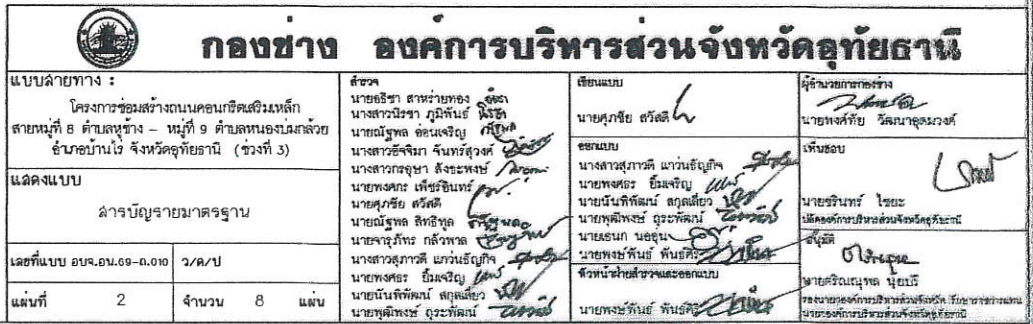 กองช่าง องค์การบริหารส่วนจังหวัดอุทัยธานี
แบบสายทาง :
โครงการซ่อมสร้างถนนคอนกรีตเสริมเหล็ก
สายหมู่ที่ 8 ตำบลหูช้าง – หมู่ที่ 9 ตำบลหนองบ่มกล้วย
อำเภอบ้านไร่ จังหวัดอุทัยธานี (ช่วงที่ 3)
แสดงแบบ
สารบัญรายมาตรฐาน
เลขที่แบบ อบจ.อน.69-ถ.010 ว/ด/ป
แผ่นที่ 2 จำนวน 8 แผ่น
สำรวจ
นายอธิชา สาหร่ายทอง
นางสาวนิรชา ภูมิพันธ์
นายณัฐพล อ่อนเจริญ
นางสาวอัจจิมา จันทร์สุวงศ์
นางสาวกรอุษา สังขะพงษ์
นายพงศกร เพ็ชร์อินทร์
นายศุภชัย สวัสดี
นายณัฐพล สิทธิกุล
นายจารุภัทร กล้วพาล
นางสาวสุภาวดี แกว่นธัญกิจ
นายพงศธร ยิ้มเจริญ
นายนันทิพัฒน์ สกุลเดี่ยว
นายพุฒิพงษ์ ถุระพัฒน์
เขียนแบบ
นายศุภชัย สวัสดี
ออกแบบ
นางสาวสุภาวดี แกว่นธัญกิจ
นายพงศธร ยิ้มเจริญ
นายนันทิพัฒน์ สกุลเดี่ยว
นายพุฒิพงษ์ ถุระพัฒน์
นายเธนก นออุ่น
นายพงษ์พันธ์ พันธศิริ
หัวหน้าฝ่ายสำรวจและออกแบบ
นายพงษ์พันธ์ พันธศิริ
ผู้อำนวยการกองช่าง
นายพงศ์ทัย วัฒนาอุดมวงศ์
เห็นชอบ
นายชรินทร์ ไชยะ
ปลัดองค์การบริหารส่วนจังหวัดอุทัยธานี
อนุมัติ
นายศริณณุพล นุ้ยปรี
รองนายกองค์การบริหารส่วนจังหวัด รักษาราชการแทน
นายกองค์การบริหารส่วนจังหวัดอุทัยธานี